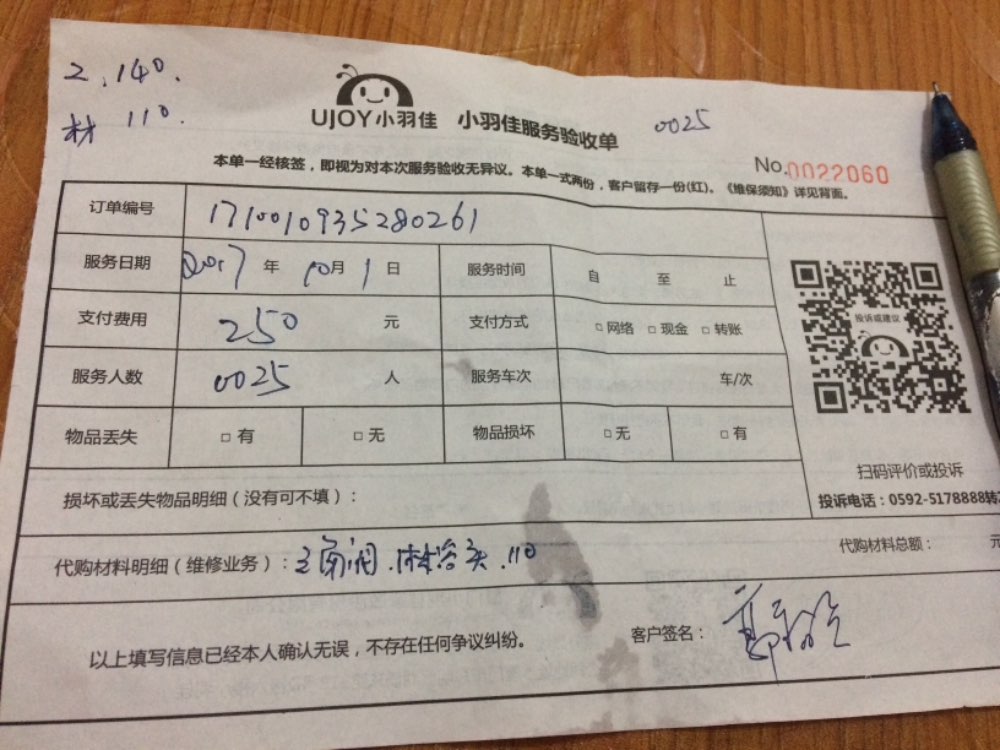 2.140.
材 110.
UJOY小羽佳 小羽佳服务验收单
0025
No.0022060
本单一经核签，即视为对本次服务验收无异议。本单一式两份，客户留存一份(红)。《维保须知》详见背面。
订单编号 1710010935280261
服务日期 2017 年 10月 1 日 服务时间 自 至 止
支付费用 250 元 支付方式 □网络 □现金 □转账
服务人数 0025 人 服务车次 车/次
物品丢失 □有 □无 物品损坏 □无 □有
投诉或建议
扫码评价或投诉
投诉电话：0592-5178888转
损坏或丢失物品明细（没有可不填）：
代购材料明细（维修业务）：三角阀 .110
代购材料总额： 元
以上填写信息已经本人确认无误，不存在任何争议纠纷。
客户签名：